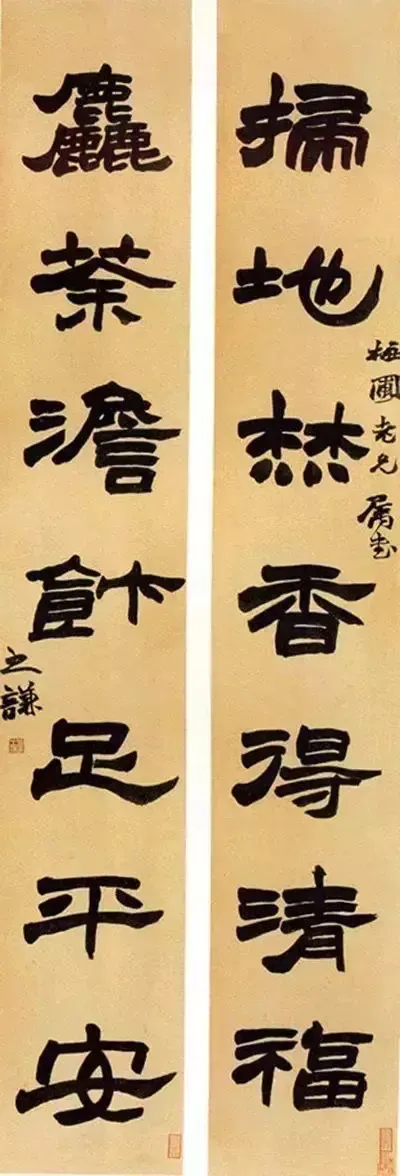 掃地焚香得清福
梅圃老兄属書
麤茶澹飰足平安
之謙